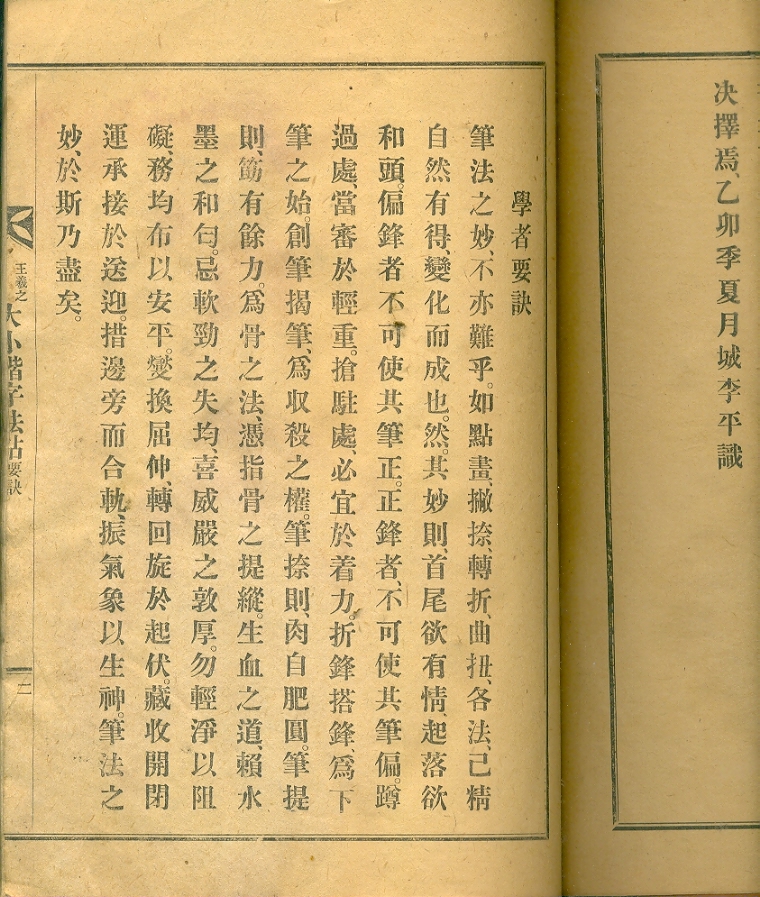 决擇焉、乙卯季夏月城李平識
學者要訣
筆法之妙、不亦難乎。如點畫、撇捺、轉折、曲扭、各法、已精
自然有得、變化而成也。然其妙則、首尾欲有情、起落欲
和頭。偏鋒者不可使其筆正。正鋒者、不可使其筆偏。蹲
過處、當審於輕重。搶駐處、必宜於着力。折鋒搭鋒、爲下
筆之始。創筆揭筆、爲收殺之權。筆捺則、肉自肥圓。筆提
則、筋有餘力。爲骨之法、憑指骨之提縱。生血之道、賴水
墨之和匀。忌軟勁之失均、喜威嚴之敦厚。勿輕淨以阻
礙、務均布以安平。變換屈伸、轉回旋於起伏。藏收開閉
運承接於送迎。措邊旁而合軌、振氣象以生神。筆法之
妙、於斯乃盡矣。
王羲之
大小楷字法帖要訣
二